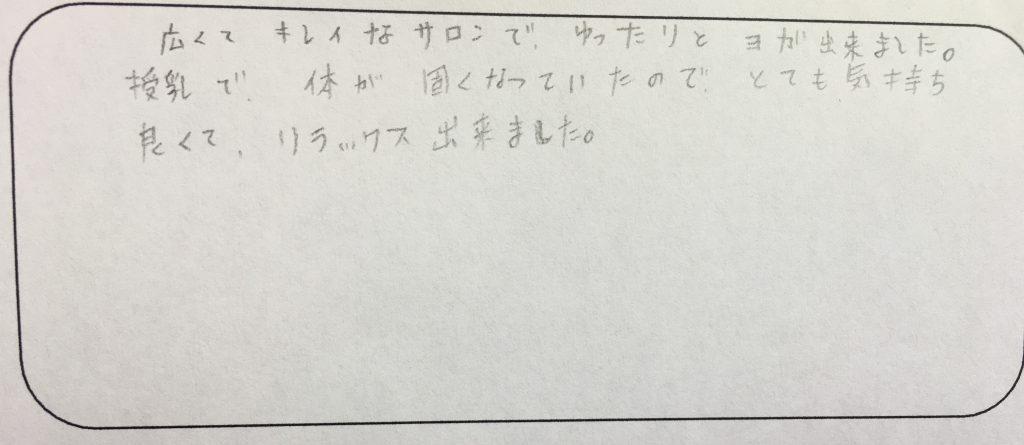 広くて キレイなサロンで、ゆったりと ヨガ出来ました。
授乳で、体が 固くなっていたので、とても気持ち
良くて、リラックス出来ました。